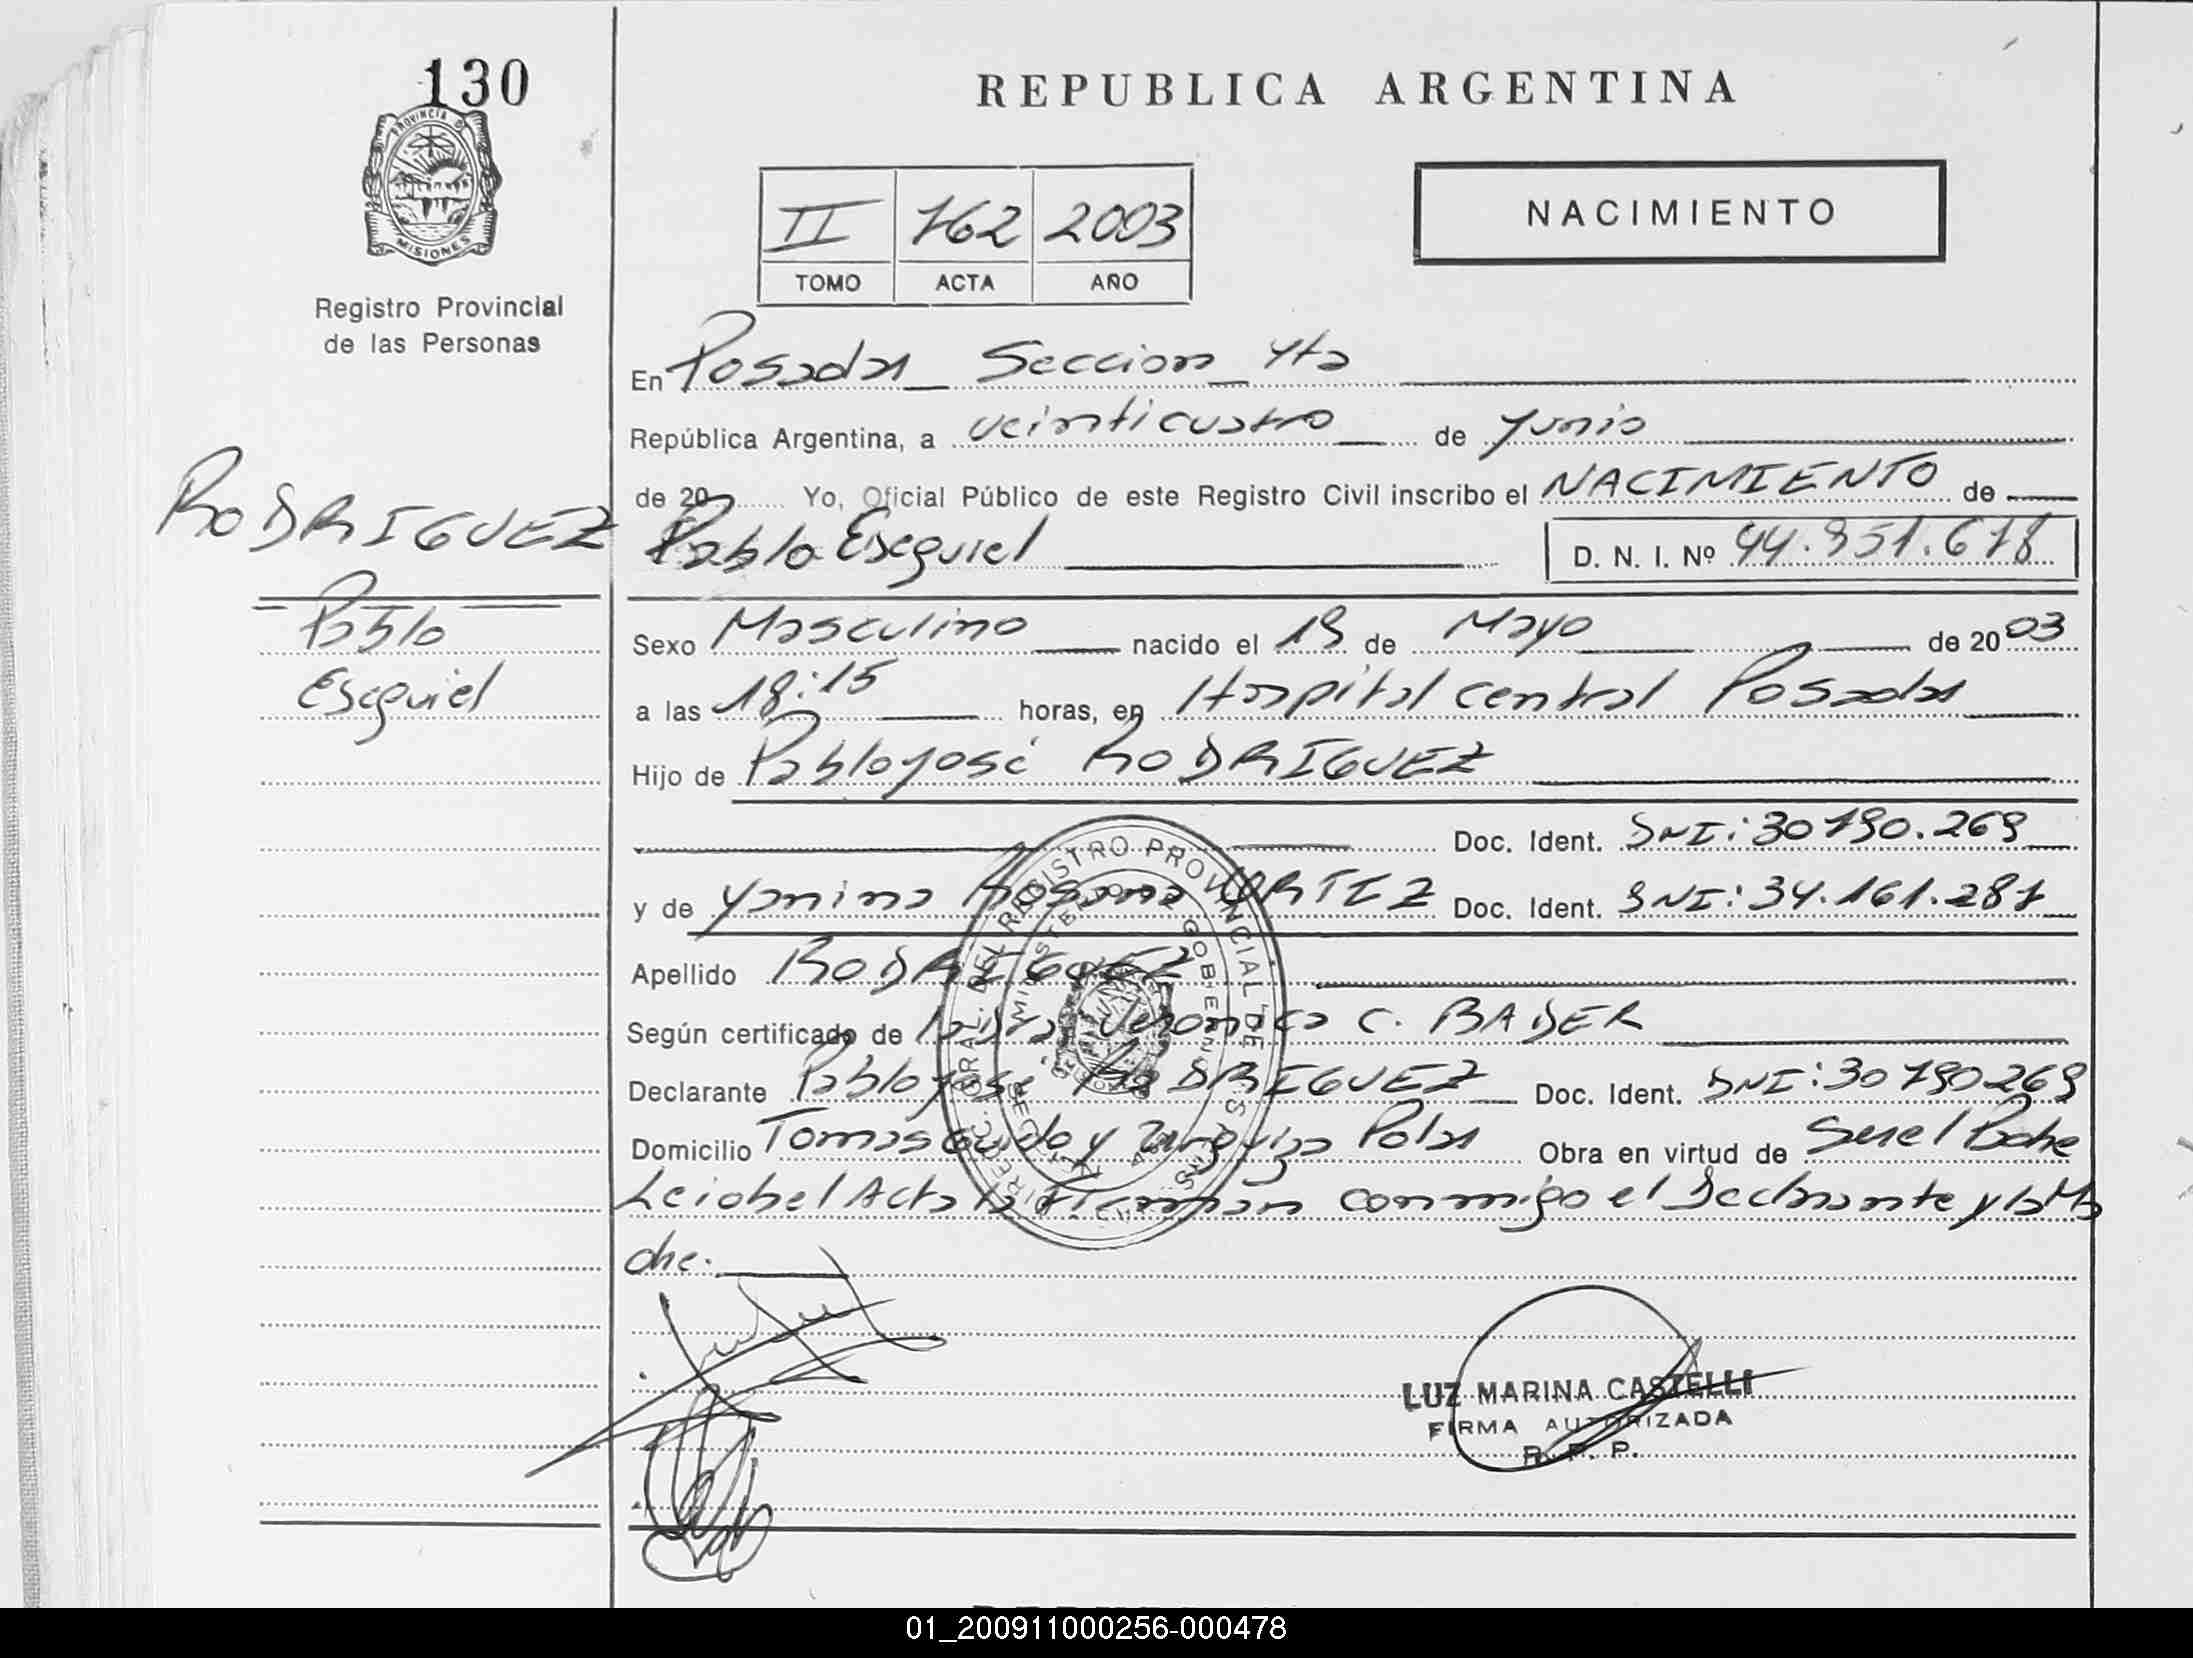 130
PROVINCIA DE
MISIONES
Registro Provincial
de las Personas
RODRIGUEZ
Pablo
Esequiel
REPUBLICA ARGENTINA
II 762 2003
TOMO ACTA AÑO
NACIMIENTO
En Posadas Seccion 4ta
República Argentina, a veinticuatro de Junio
de 20 Yo, Oficial Público de este Registro Civil inscribo el NACIMIENTO de
Pablo Esequiel D. N. I. Nº 44.951.678
Sexo Masculino nacido el 19 de Mayo de 2003
a las 18:15 horas, en Hospital central Posadas
Hijo de Pablo José RODRIGUEZ
Doc. Ident. DNI: 30790.269
y de Yanina Rosana ORTIZ Doc. Ident. DNI: 34.161.287
Apellido RODRIGUEZ
Según certificado de la Dra. Veronica C. BADER
Declarante Pablo José RODRIGUEZ Doc. Ident. DNI: 30790269
Domicilio Tomas Guido y Urquiza Obra en virtud de Ser el Padre
Leida el Acta la Firman conmigo el Declarante y la Ma
dre.
LUZ MARINA CASTELLI
FIRMA AUTORIZADA
R. P. P.
01_200911000256-000478